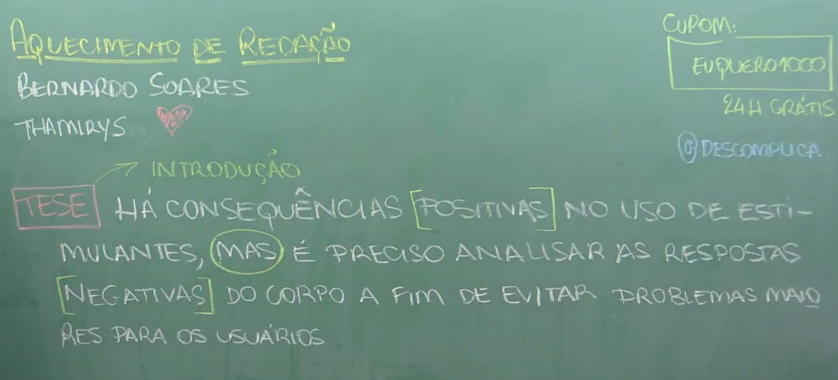 AQUECIMENTO DE REDAÇÃO
BERNARDO SOARES
THAMIRYS
CUPOM:
EUQUERO1000
24H GRÁTIS
@DESCOMPLICA
INTRODUÇÃO
TESE HÁ CONSEQUÊNCIAS [POSITIVAS] NO USO DE ESTI-
MULANTES, MAS É PRECISO ANALISAR AS RESPOSTAS
[NEGATIVAS] DO CORPO A FIM DE EVITAR PROBLEMAS MAIO
RES PARA OS USUÁRIOS